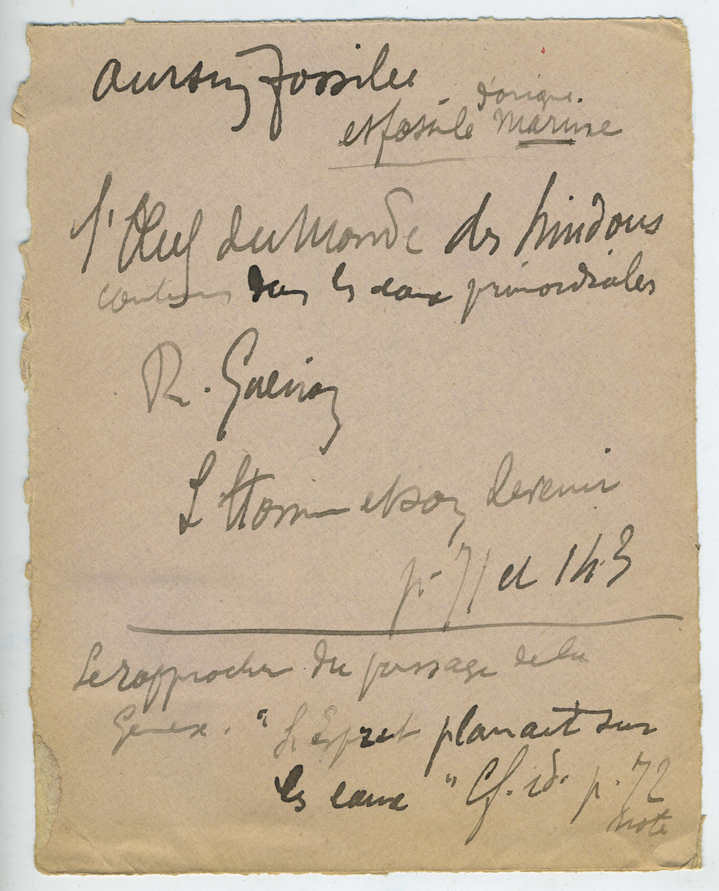 oursin fossile
d'origine
et fossile marine
l'Œuf du Monde des hindous
contenu dans les eaux primordiales
R. Guénon
L'Homme et son devenir
p. 71 et 143
Le rapprocher du passage de la
Genèse. "L'Esprit planait sur
les eaux" Cf. id. p. 72
note